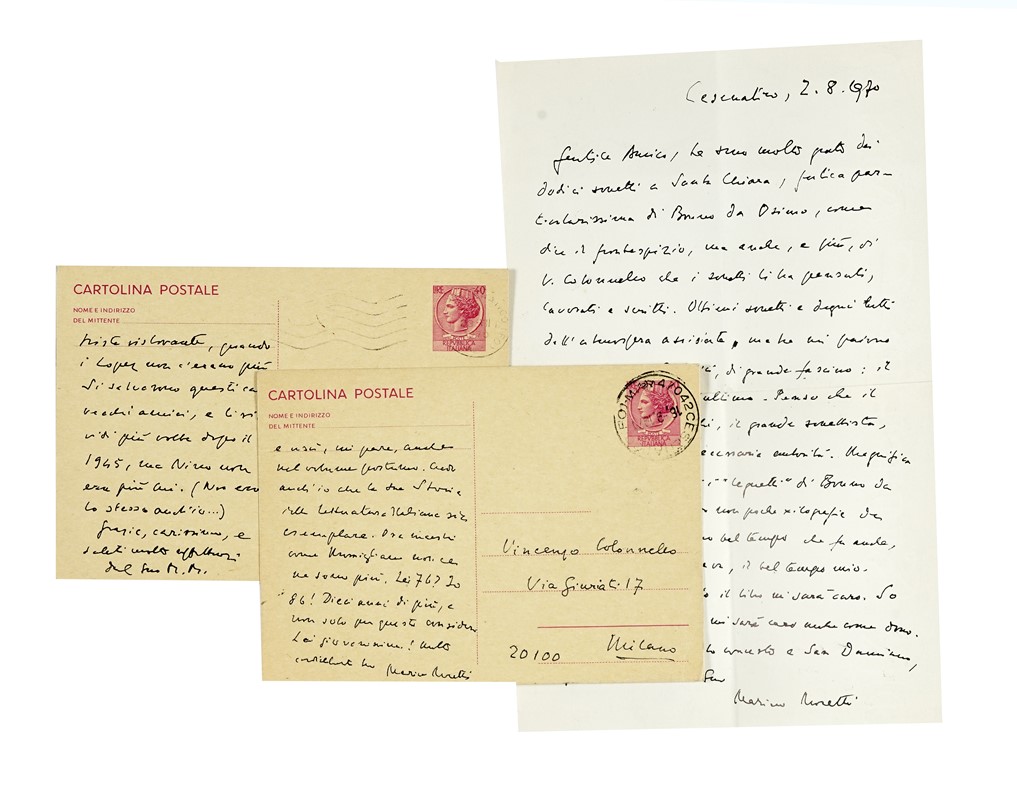 CARTOLINA POSTALE
NOME E INDIRIZZO
DEL MITTENTE
triste ristorante, quando
i Lopez non c'erano più
Si salvarono questi ca
vecchi amici, e li ri
vidi più volte dopo il
1945, ma Nino non
era più lui. (Non ero
lo stesso anch'io...)
Grazie, carissimo, e
saluti molto affettuosi
dal Suo M. M.
40
REPUBBLICA
ITALIANA
CARTOLINA POSTALE
NOME E INDIRIZZO
DEL MITTENTE
e uscì, mi pare, anche
nel volume postumo. Credo
anch'io che la sua Storia
della Letteratura Italiana sia
esemplare. Ora maestri
come Momigliano non ce
ne sono più. Lei 76? Io
86! Dieci anni di più, e
non solo per questo considero
Lei giovanissimo! Molto
cordialmente Suo Marino Moretti
REPUBBLICA
ITALIANA
47042 CE
Vincenzo Colonnello
Via Giuriati 17
20100 Milano
Cesenatico, 2.8.1970
Gentile Amico, Le sono molto grato dei
dodici sonetti a Santa Chiara, fatica par-
ticolarissima di Bruno da Osimo, come
dice il frontespizio, ma anche, e più, di
V. Colonnello che i sonetti li ha pensati,
lavorati e scritti. Ottimi sonetti e degni tutti
dell'atmosfera assisiate, ma che mi paiono
di grande fascino: il
ultimo. Penso che il
il grande sonettista,
necessaria autorità. Magnifica
"legnetti" di Bruno da
non poche xilografie del
bel tempo che fu anche,
il bel tempo mio.
il libro mi sarà caro. So
mi sarà caro anche come dono.
concesto a San Damiano,
Suo
Marino Moretti